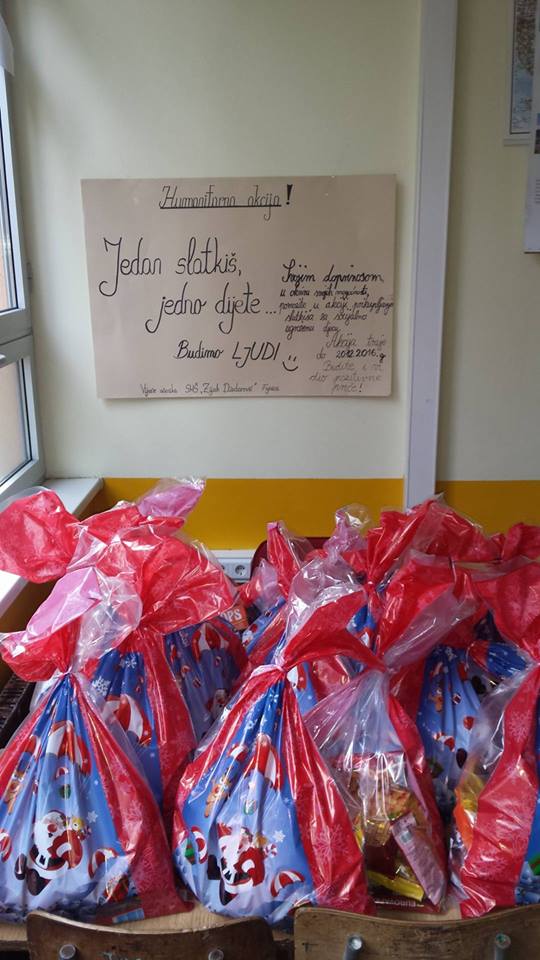 Humanitarna akcija!
Jedan slatkiš,
jedno dijete...
Budimo LJUDI
Svojim doprinosom,
u okviru svojih mogućnosti,
pomozite u akciji prikupljanja
slatkiša za socijalno
ugroženu djecu.
Akcija traje
do 20.12.2016.g
Budite i vi
dio pozitivne
priče!
Vijeće učenika SMŠ "Zijah Dizdarević" Fojnica